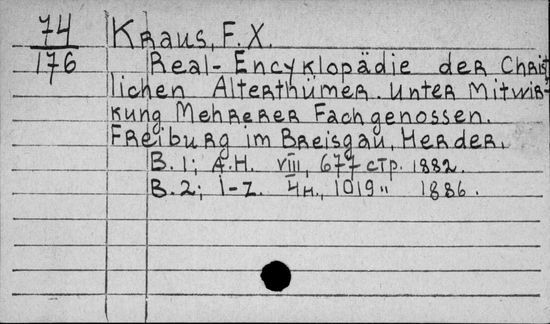 74 Kraus, F.X.
176 Real-Encyklopädie der Christ
lichen Alterthümer. Unter Mitwir-
kung Mehrerer Fachgenossen.
Freiburg im Breisgau, Herder.
B. 1; A.H. VIII, 677 стр. 1882.
B. 2; I-Z. 4н., 1019 " 1886.